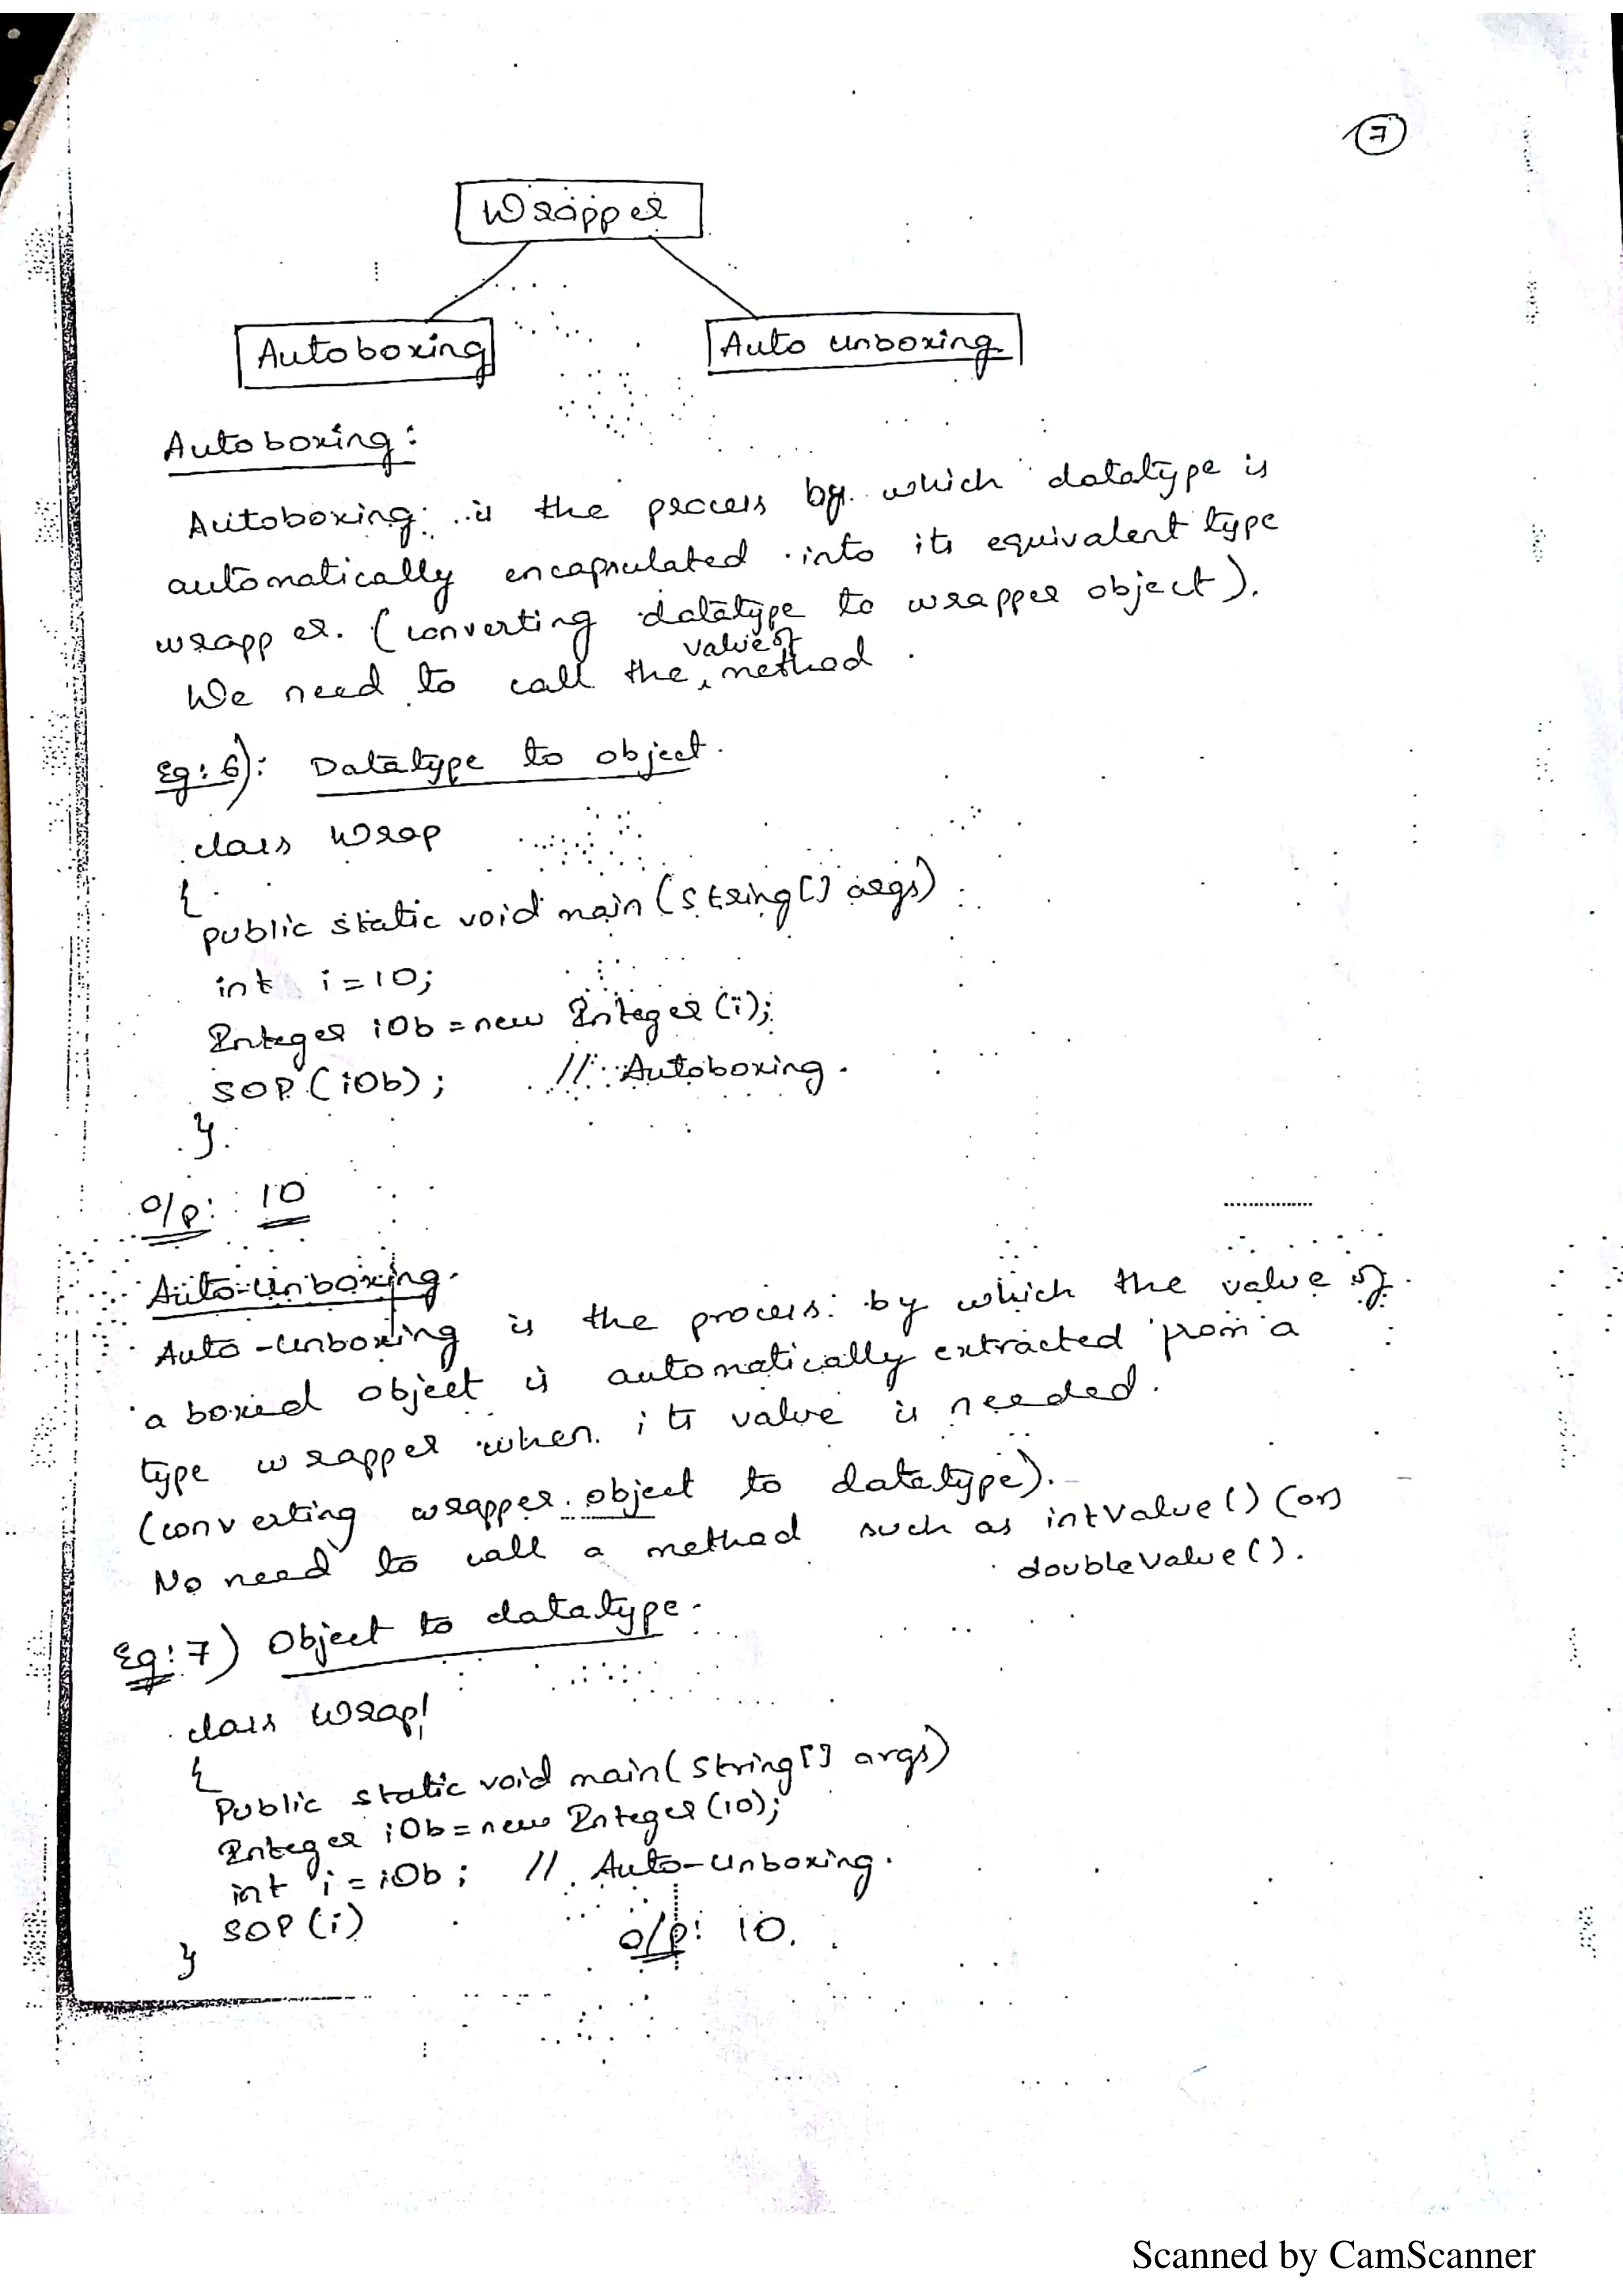 7
Wrapper
Autoboxing
Auto unboxing
Autoboxing:
Autoboxing is the process by which datatype is
automatically encapsulated into its equivalent type
wrapper. (converting datatype to wrapper object).
value of
We need to call the method.
Eg:6): Datatype to object.
class Wrap
{
public static void main(String[] args)
int i=10;
Integer iOb = new Integer(i);
SOP(iOb); // Autoboxing.
}
o/p: 10
Auto-unboxing.
Auto-unboxing is the process by which the value of
a boxed object is automatically extracted from a
type wrapper when its value is needed.
(converting wrapper object to datatype).
No need to call a method such as intValue() (or)
doubleValue().
Eg:7) Object to datatype.
class Wrap1
{
Public static void main(String[] args)
Integer iOb = new Integer(10);
int i = iOb; // Auto-unboxing.
SOP(i)
o/p: 10.
}
Scanned by CamScanner